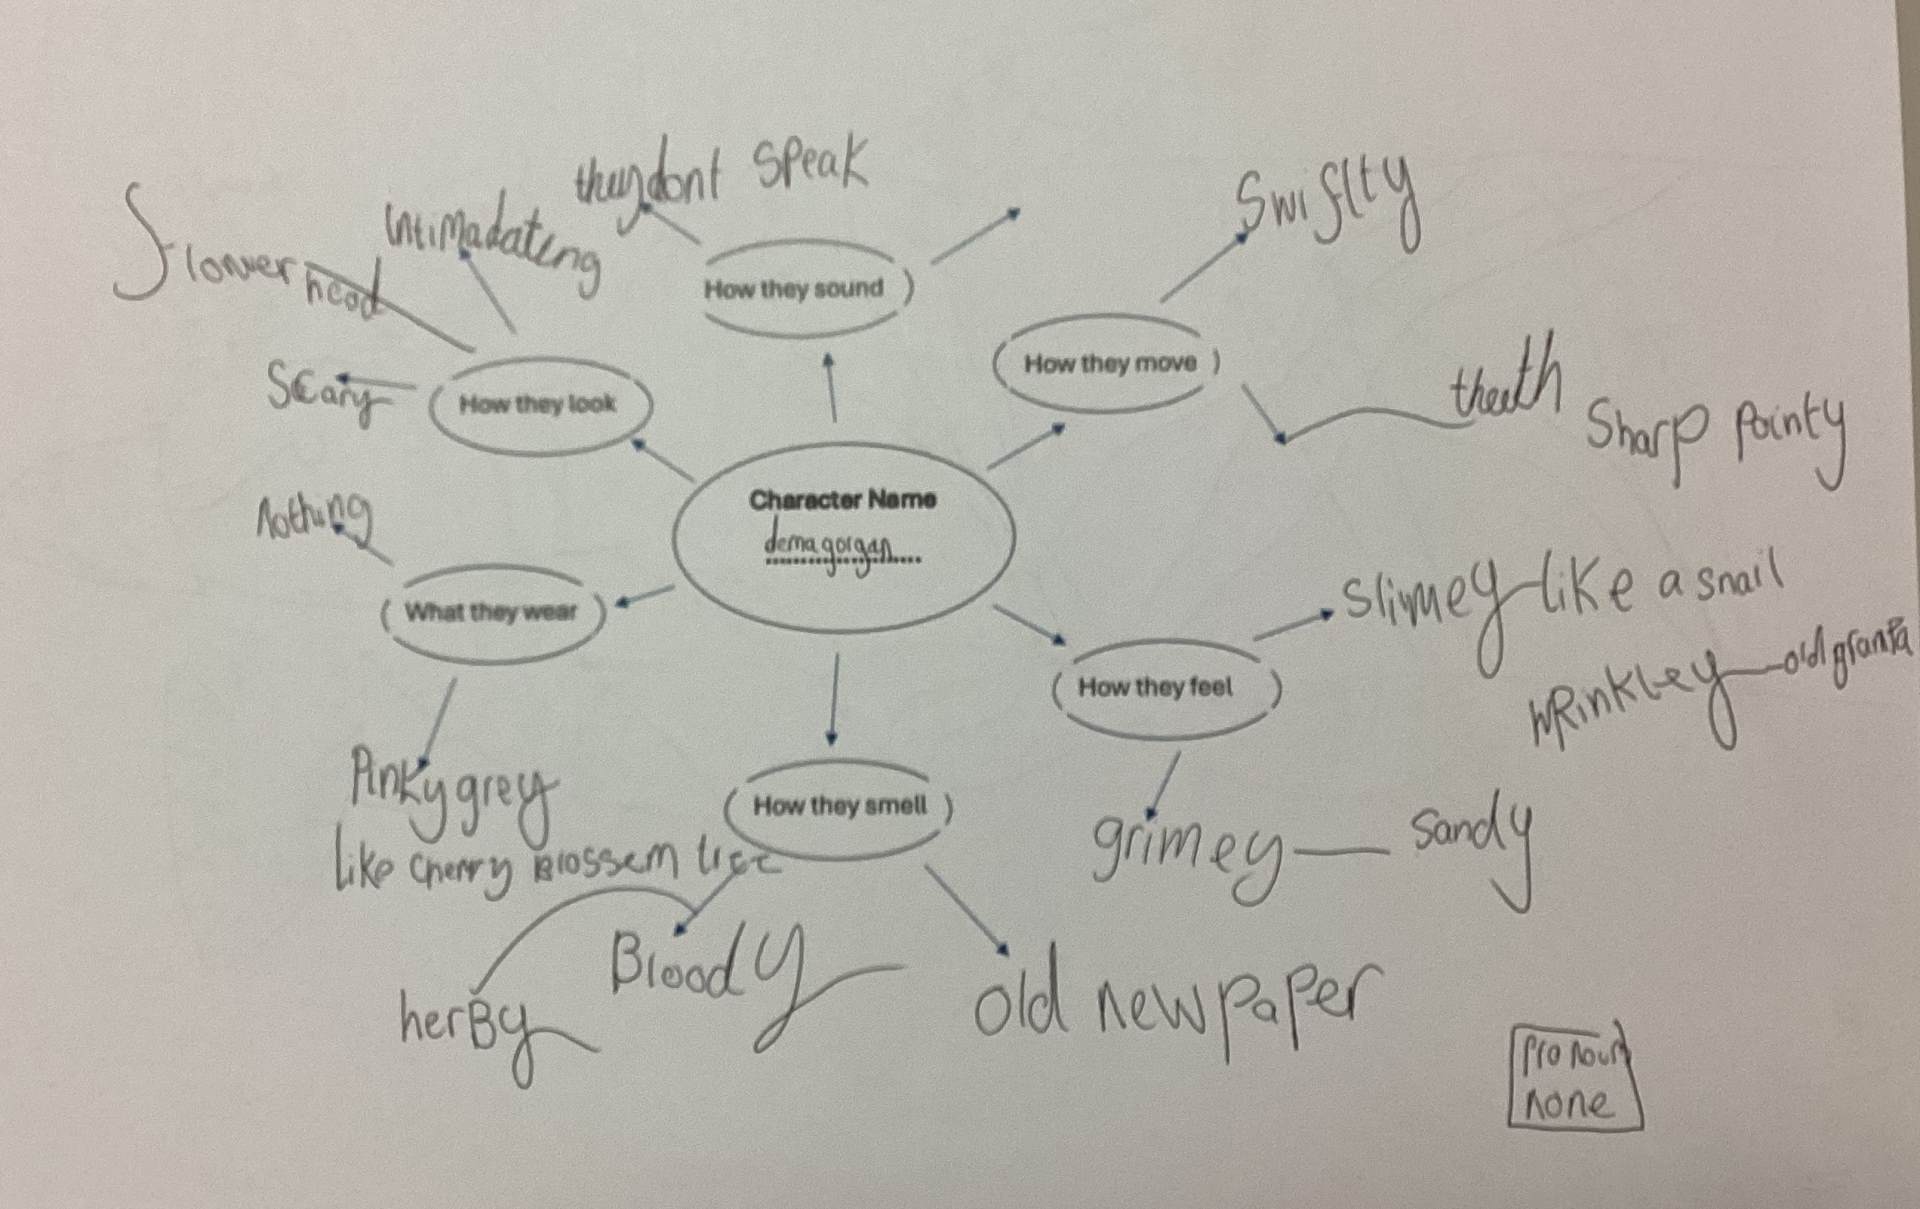 they dont speak
Swiflty
intimadateing
flower head
How they sound
How they move
theeth
Sharp pointy
Scary
How they look
Nothing
Character Name
demagorgan
What they wear
slimey like a snail
wRinkley old granPa
How they feel
Pinky grey
like cherry Blossem tree
How they smell
grimey sandy
Bloody
herBy
old newpaper
pronoun
none